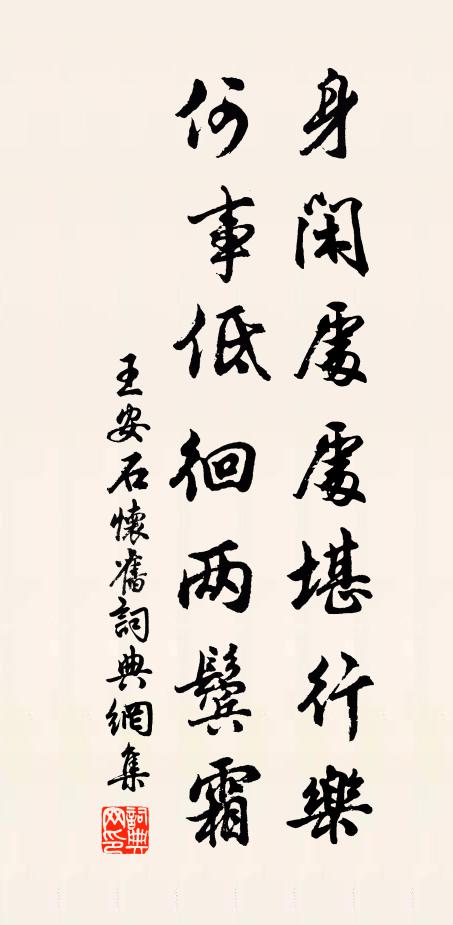 身閑處處堪行樂
何事低徊两鬢霜
王安石懷舊詞典網集
詞典网印